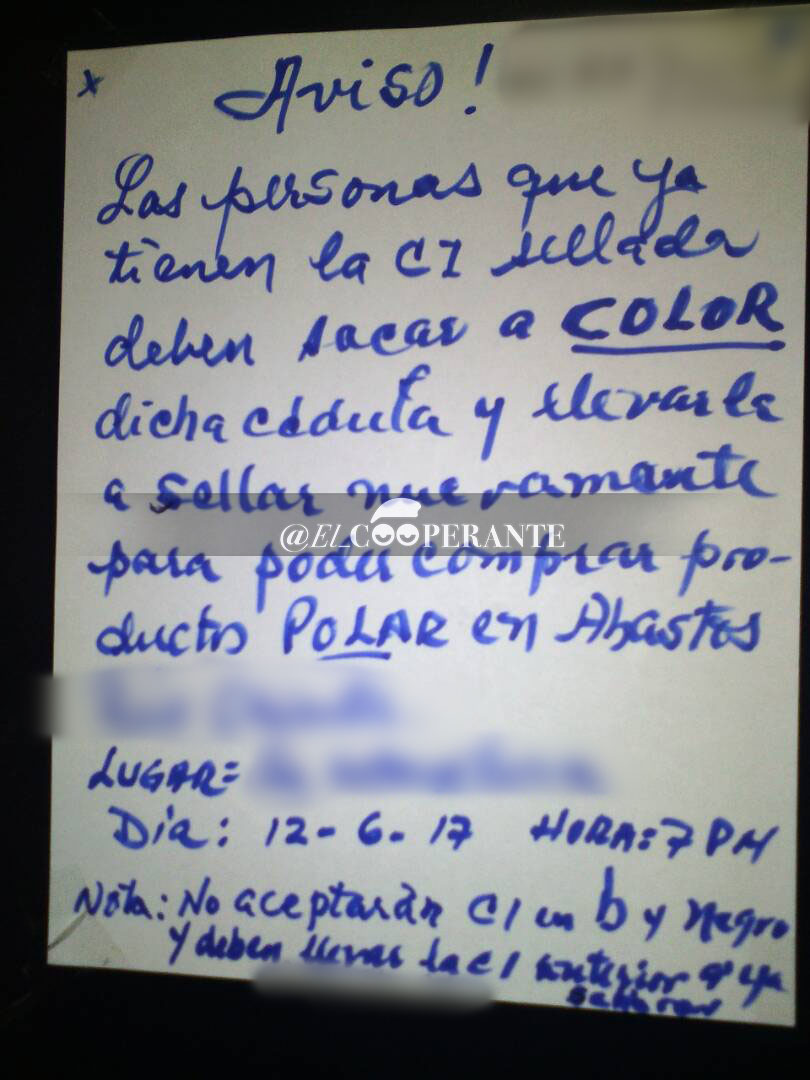 x Aviso!
Las personas que ya
tienen la CI sellada
deben sacar a COLOR
dicha cédula y llevarla
a sellar nuevamante
@ELCOOPERANTE
para poder comprar pro-
ductos POLAR en Abastos
LUGAR=
Día: 12-6-17 HORA: 7 PM
Nota: No aceptarán CI en b y negro
y deben llevar la CI anterior q' ya
sellaron